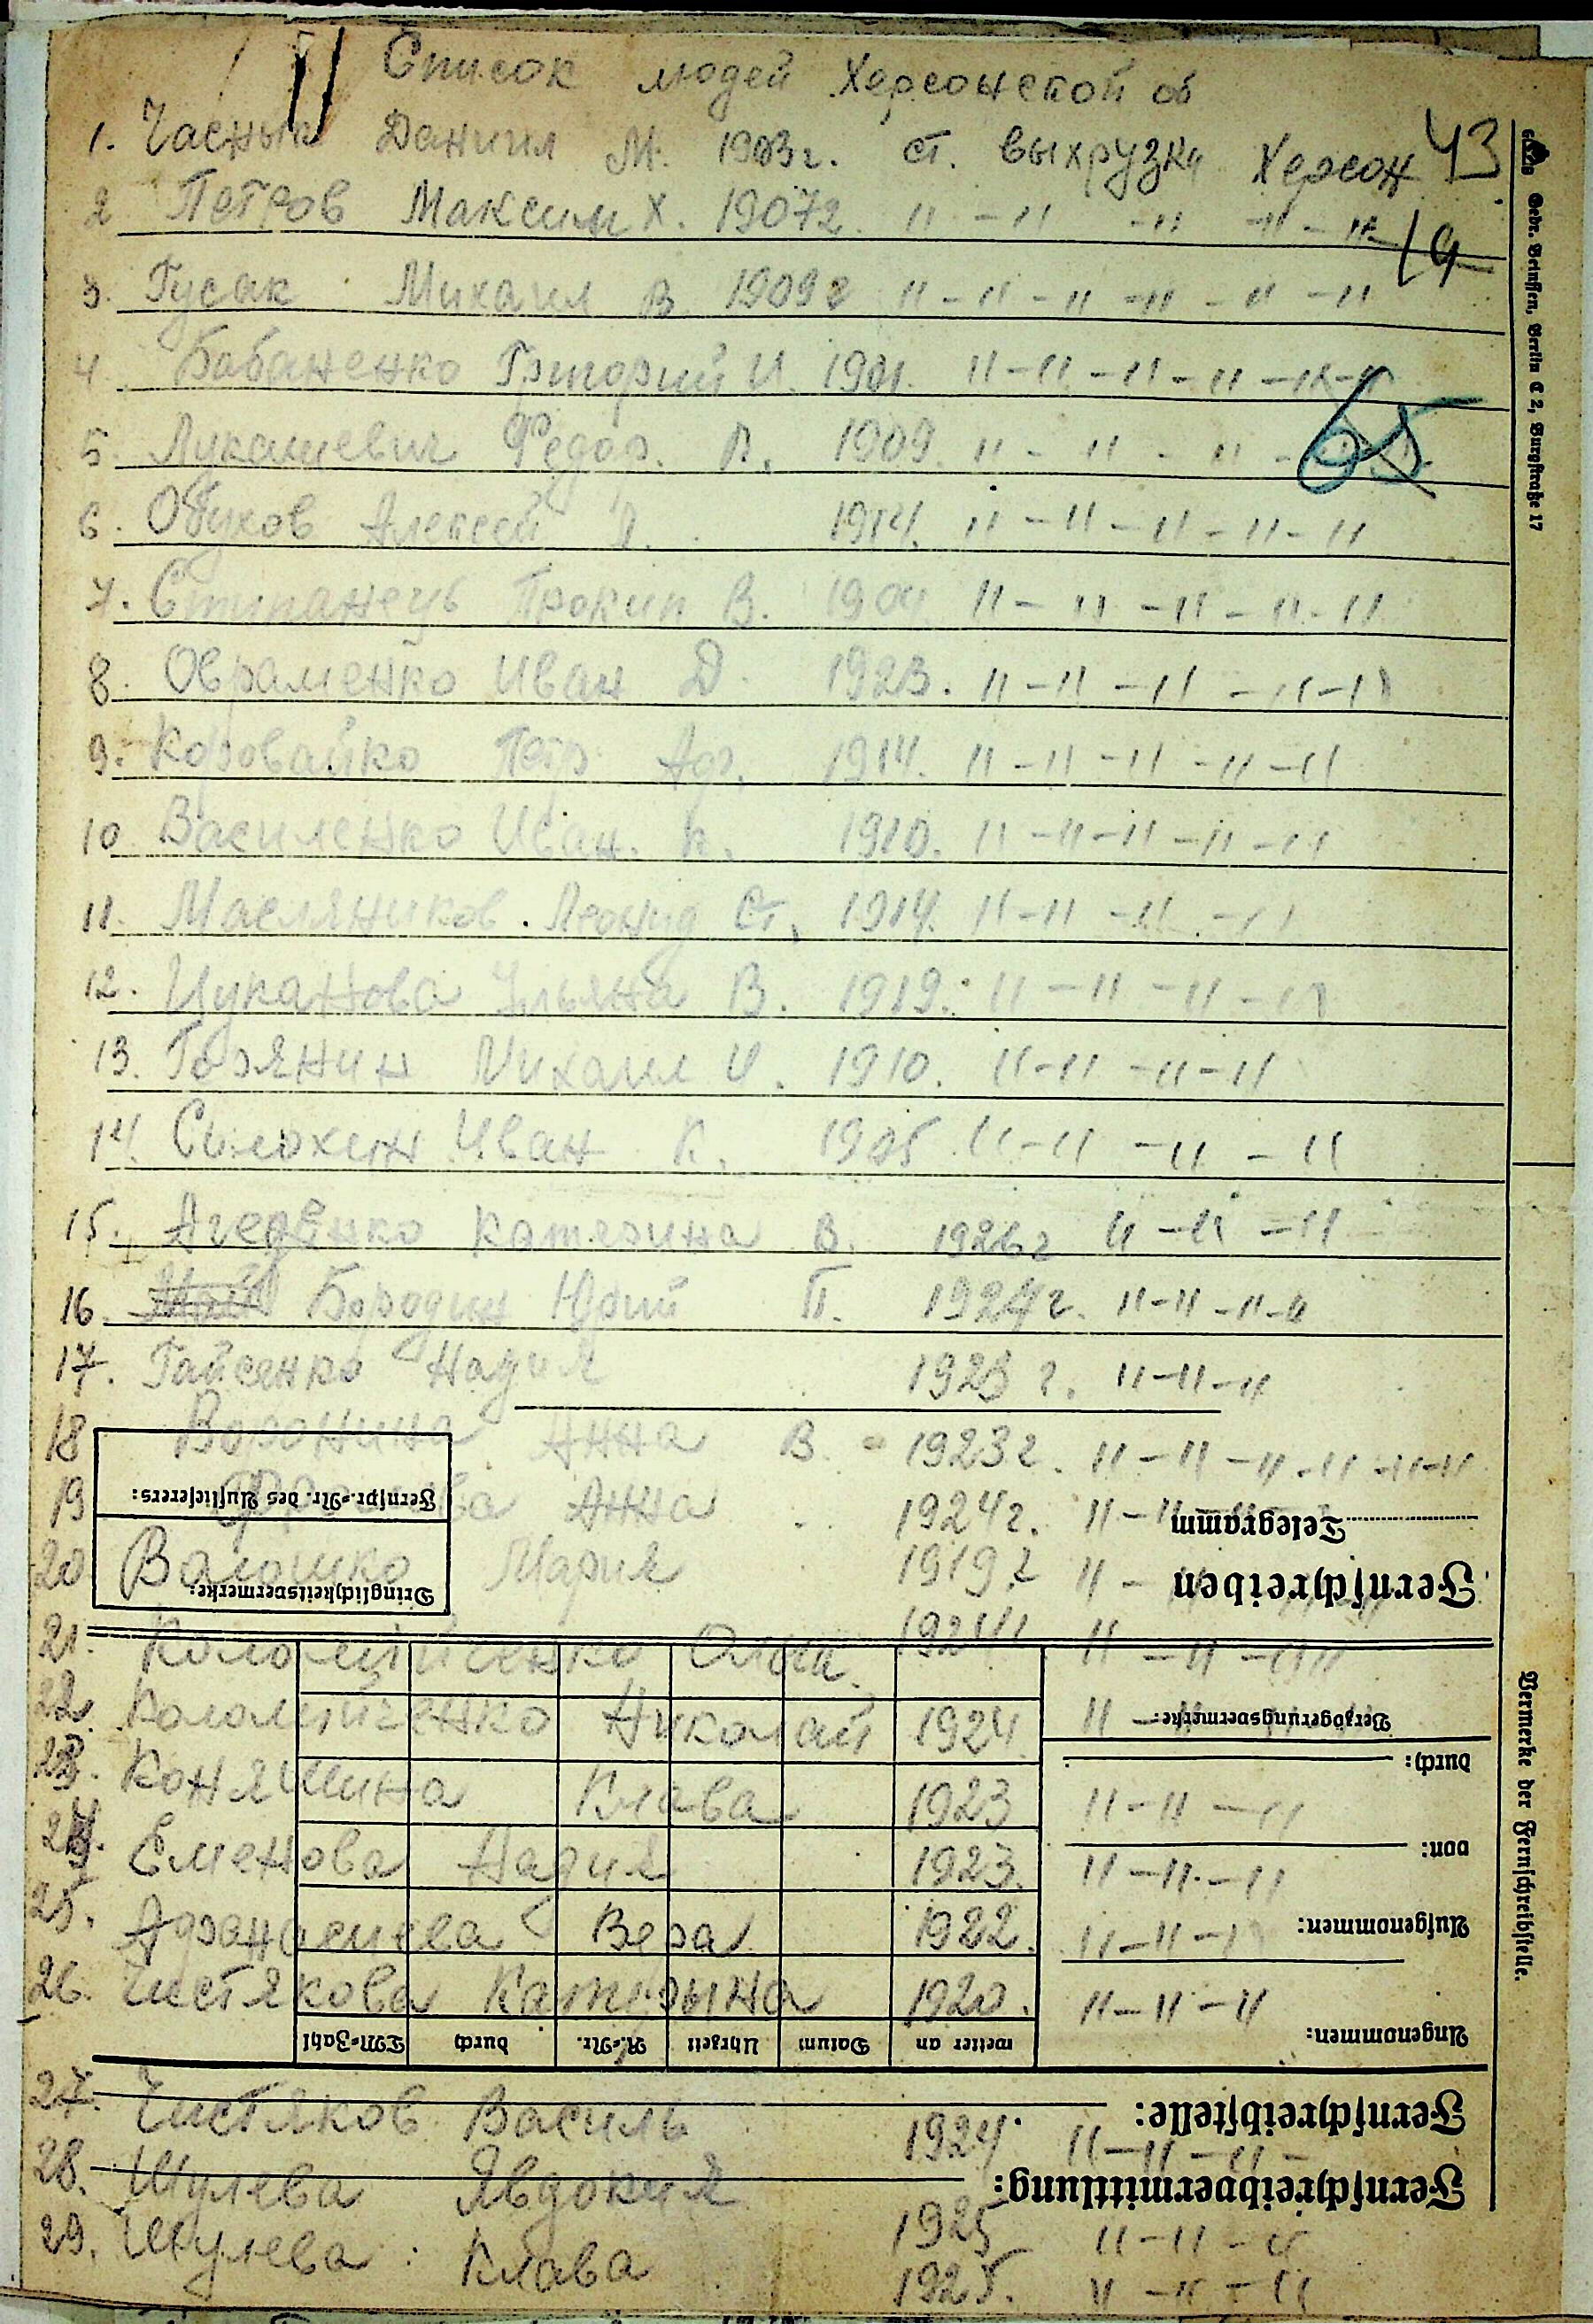 Список людей Херсонской об
1. Часнык Даниил М. 1903г. ст. выхрузка Херсон 43
2 Петров Максим Х. 1907г. " - " - " - " - " 19
3. Гусак Михаил В. 1909г " - " - " - " - " - "
4. Бабаненко Григорий И. 1901. " - " - " - " - " - "
65
5. Лукашевич Федор. П. 1909. " - " - " -
6. Обухов Алексей П. 1914. " - " - " - " - "
7. Стипанець Прокип В. 1904 " - " - " - " - "
8. Овраменко Иван Д. 1923. " - " - " - " - "
9. Коровайко Петр 1914. " - " - " - " - "
10 Василенко Иван. К. 1910. " - " - " - " - "
11. Масляников. Леонид Ст. 1914. " - " - " - "
12. Цуканова Ульяна В. 1919. " - " - " - "
13. Горянин Михаил И. 1910. " - " - " - "
14. Иван К. 1905 " - " - " - "
15. Катерина В. 1926г " - " - "
16. Бородин Юрий П. 1924г. " - " - " - "
17. Гайсенко Надия 1923 г. " - " - "
18 Воронина Анна В. 1923г. " - " - " - " - " - "
Fernspr.-Nr. des Auflieferers:
19 Анна 1924г. " - "
Telegramm
20 Валошко Мария 1919г " -
Dringlichkeitsvermerke:
Fernschreiben
21. 1924 " - " - "
22. Коломийченко Николай 1924 " -
Verzögerungsvermerke:
durch:
23. Коняшина Клава 1923 " - " - "
von:
24. Еменова Надия 1923. " - " - "
25. Вера 1922. " - " - "
Aufgenommen:
26. Чистякова Катерына 1920. " - " - "
TM=Zahl durch R.=Nr. Uhrzeit Datum weiter an
Angenommen:
27. Чистяков Василь 1924. " - " - "
Fernschreibstelle:
28. Шулева Явдокия 1925 " - " - "
Fernschreibvermittlung:
29. Шулева Клава 1925. " - " - "
Gebr. Geiussen, Berlin C 2, Burgstraße 17
Vermerke der Fernschreibstelle.